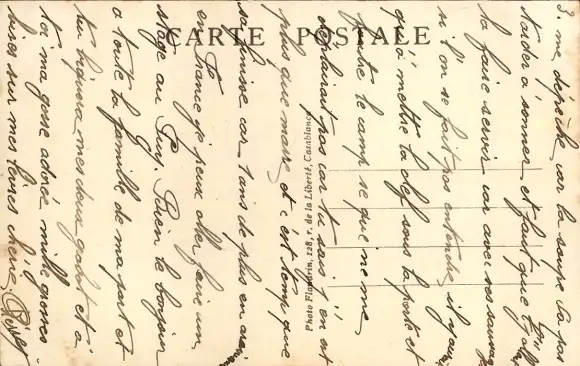 CARTE POSTALE
Photo Flandrin, 128, r. de la Liberté, Casablanca
3. me dépêche, car la soupe va pas
tarder à sonner, et faut que
la faire servir car avec ces sauvages
si l'on se fait pas entendre, il y aurait
qu'à mettre la clef sous la porte et
foutre le camp ce que ne me
déplairait pas car tu sais j'en ai
plus que marre et c'est temps que
sa finisse car 1 ans de plus en
et je peux aller faire un
stage au Puy. Bien le bonjour
a toute la famille de ma part et
tu biquera mes deux et à
toi ma gosse adoré, mille grosses
bises sur mes lèvres